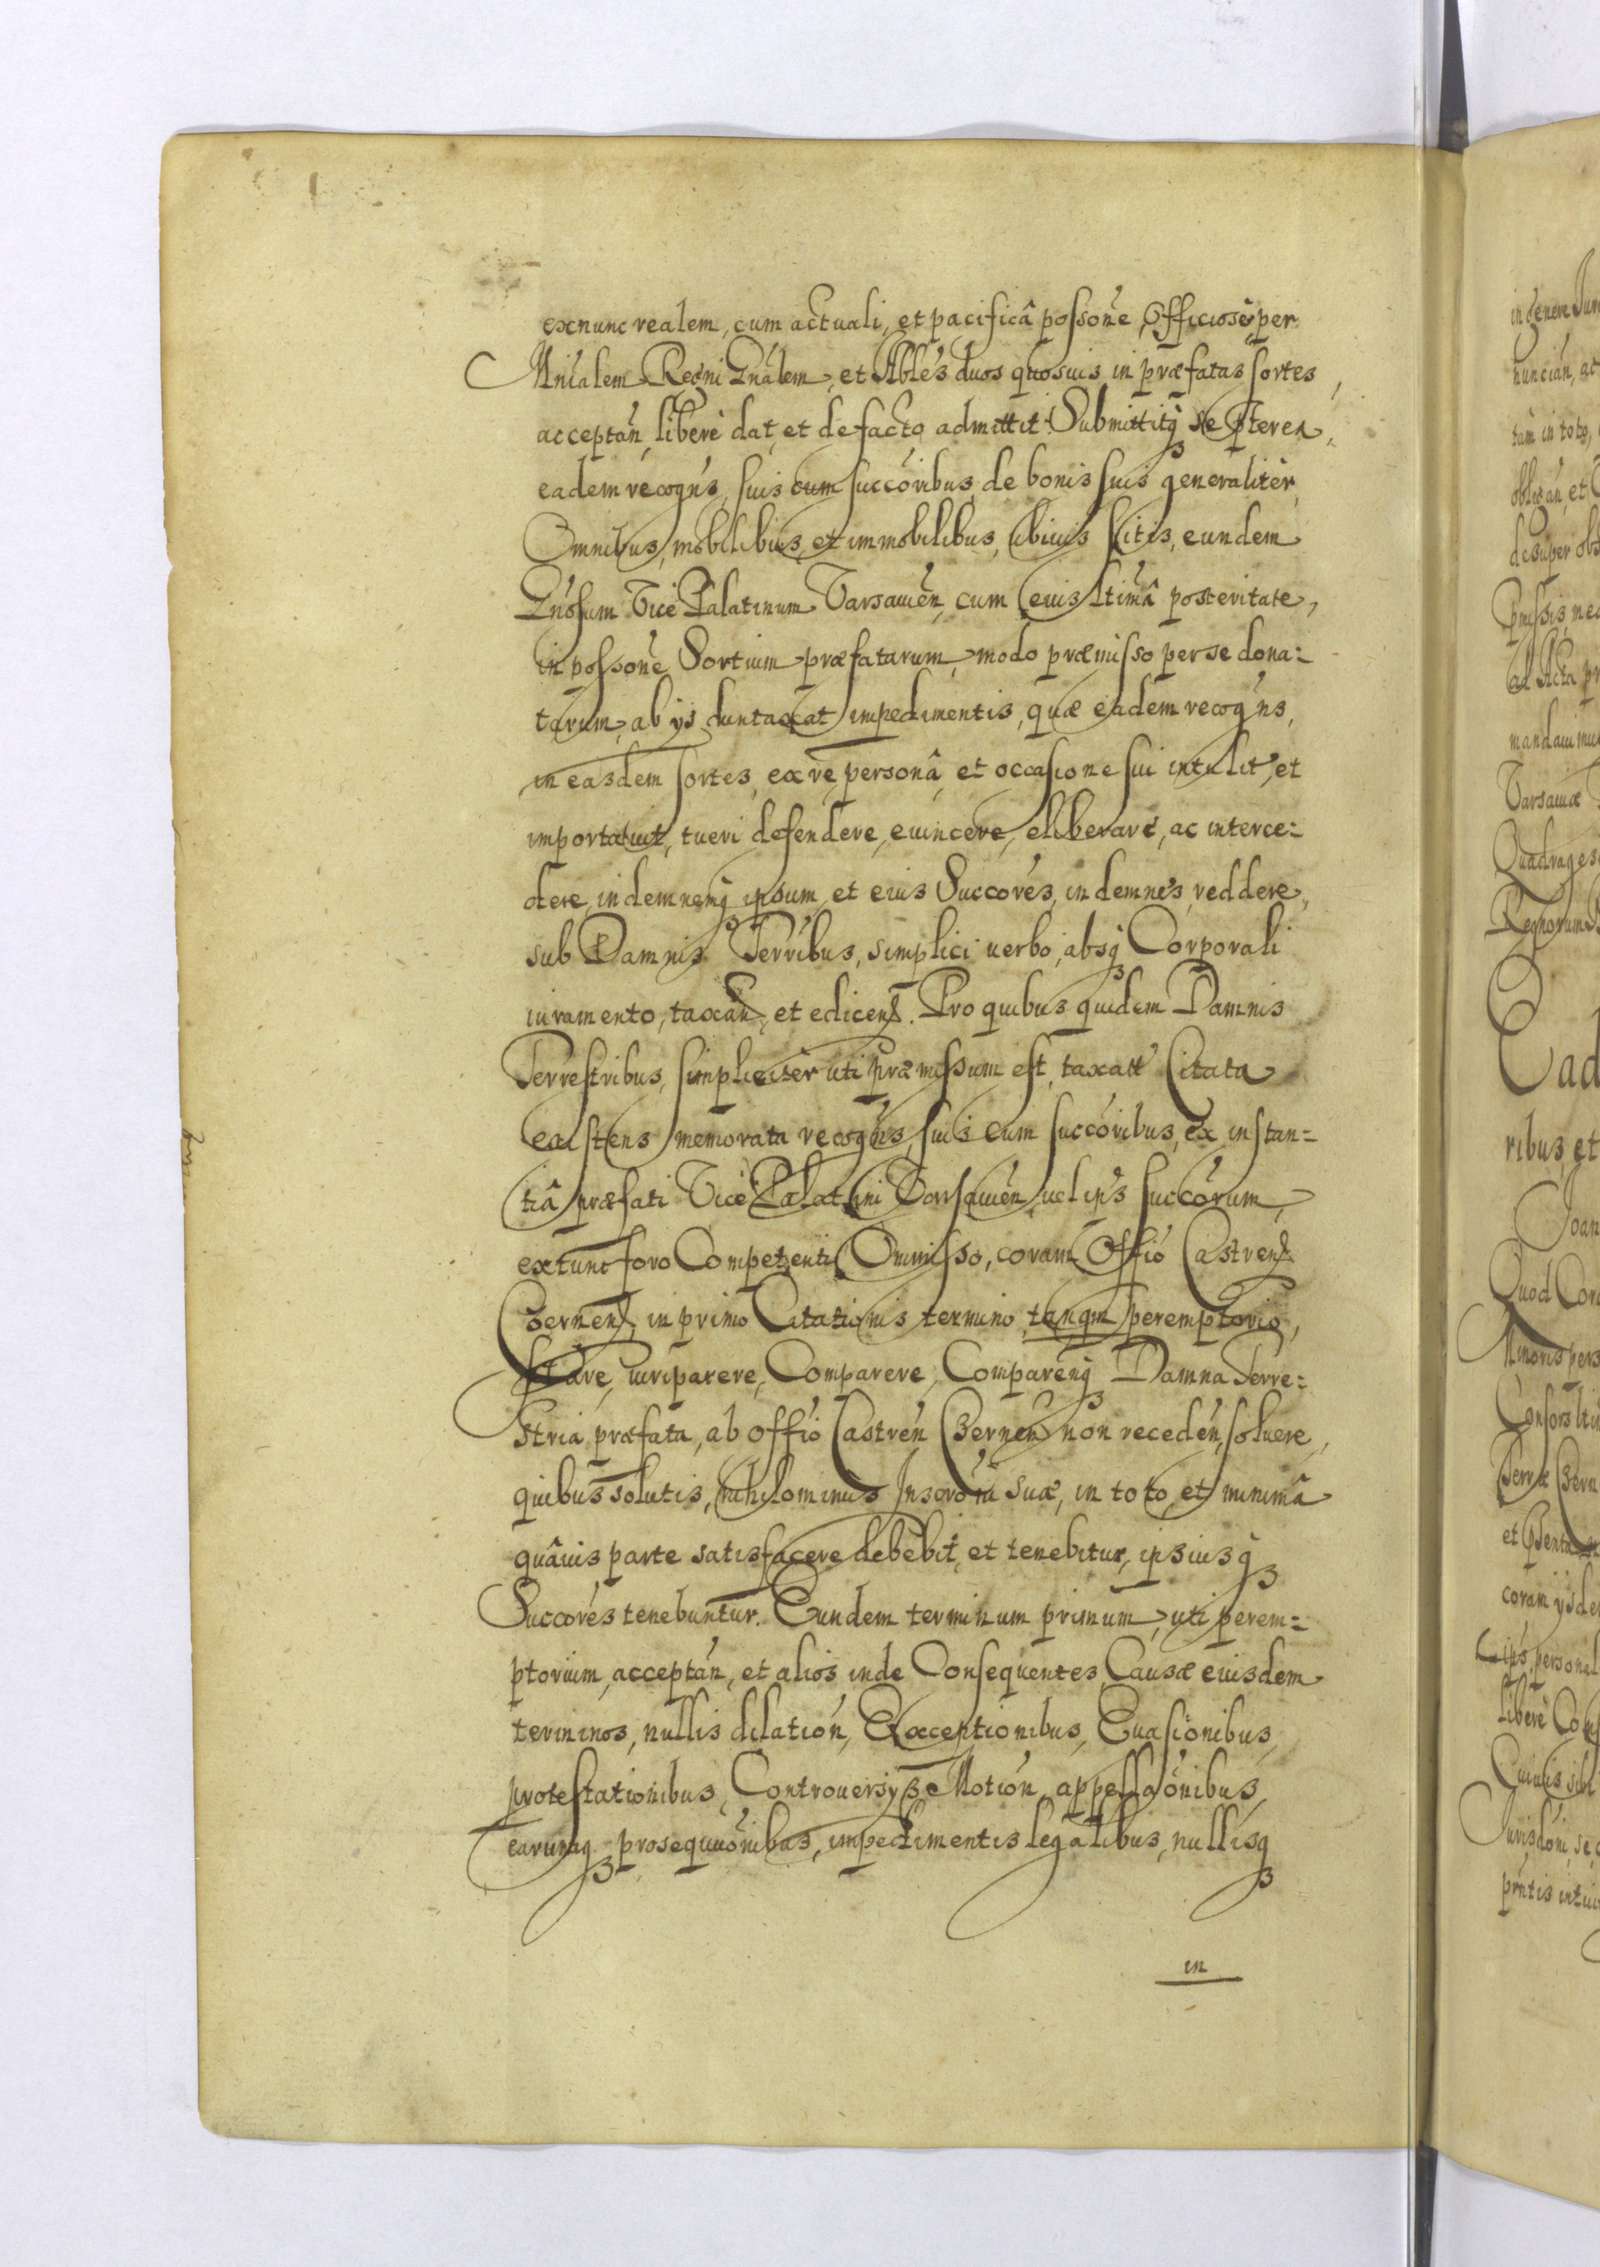 exnunc realem, cum actuali, et pacificâ possoñe, Officiosè per
Mniālem Regni Gnālem, et Nbles duos quosuis in præfatas sortes,
acceptan̄, liberè dat, et de facto admittit. Submittitq3 se pterea,
eadem recogn̄s, suis cum succōribus, de bonis suis generalitèr,
Omnibus, mobilibus, et immobilibus, ubiuis sitis, eundem
Gnōsum Vice Palatinum Varsauien̄, cum eius ltimâ posteritate,
in possoñe Sortium præfatarum, modo præmisso per se dona=
tarum, ab ijs duntaxat impedimentis, quæ eadem recogn̄s,
in easdem sortes, ex re, personâ, et occasione sui intulit, et
importauit, tueri defendere, euincere, eliberare, ac interce=
dere, indemnemq3 ipsum, et eius Succōres, indemnes, reddere,
sub Damnis Terrībus, simplici uerbo, absq3 Corporali
iuramento, taxan̄, et edicen̄. Pro quibus quidem Damnis
Terrestribus, simpliciter uti præmissum est, taxatt Citata
existens memorata recogn̄s, suis cum succōribus, ex instan=
tiâ præfati Vice Palatini Varsauien̄, uel ips̄ succōrum,
extunc foro Competenti Ommisso, coram Offiō Castren̄
Czernen̄, in primo Citationis termino, tanqm̄ peremptorio,
stare, iuri parere, Comparere, Comparenq3 Damna Terre=
stria præfata, ab offiō Castren̄ Czernen̄ non receden̄, soluere,
quibus solutis, nihilominus Inscrōni suæ, in toto, et minimâ
quâuis parte satisfacere debebit, et tenebitur, ipsiusq3
Succōres tenebuntur. Eundem terminum primum, uti perem=
ptorium, acceptan̄, et alios inde Consequentes, Causæ eiusdem
terminos, nullis dilation̄, Exceptionibus, Euasionibus,
protestationibus, Controuersijs, Motion̄, appellaōnibus,
earumq3 prosequuōnibus, impedimentis legalibus, nullisq3
in